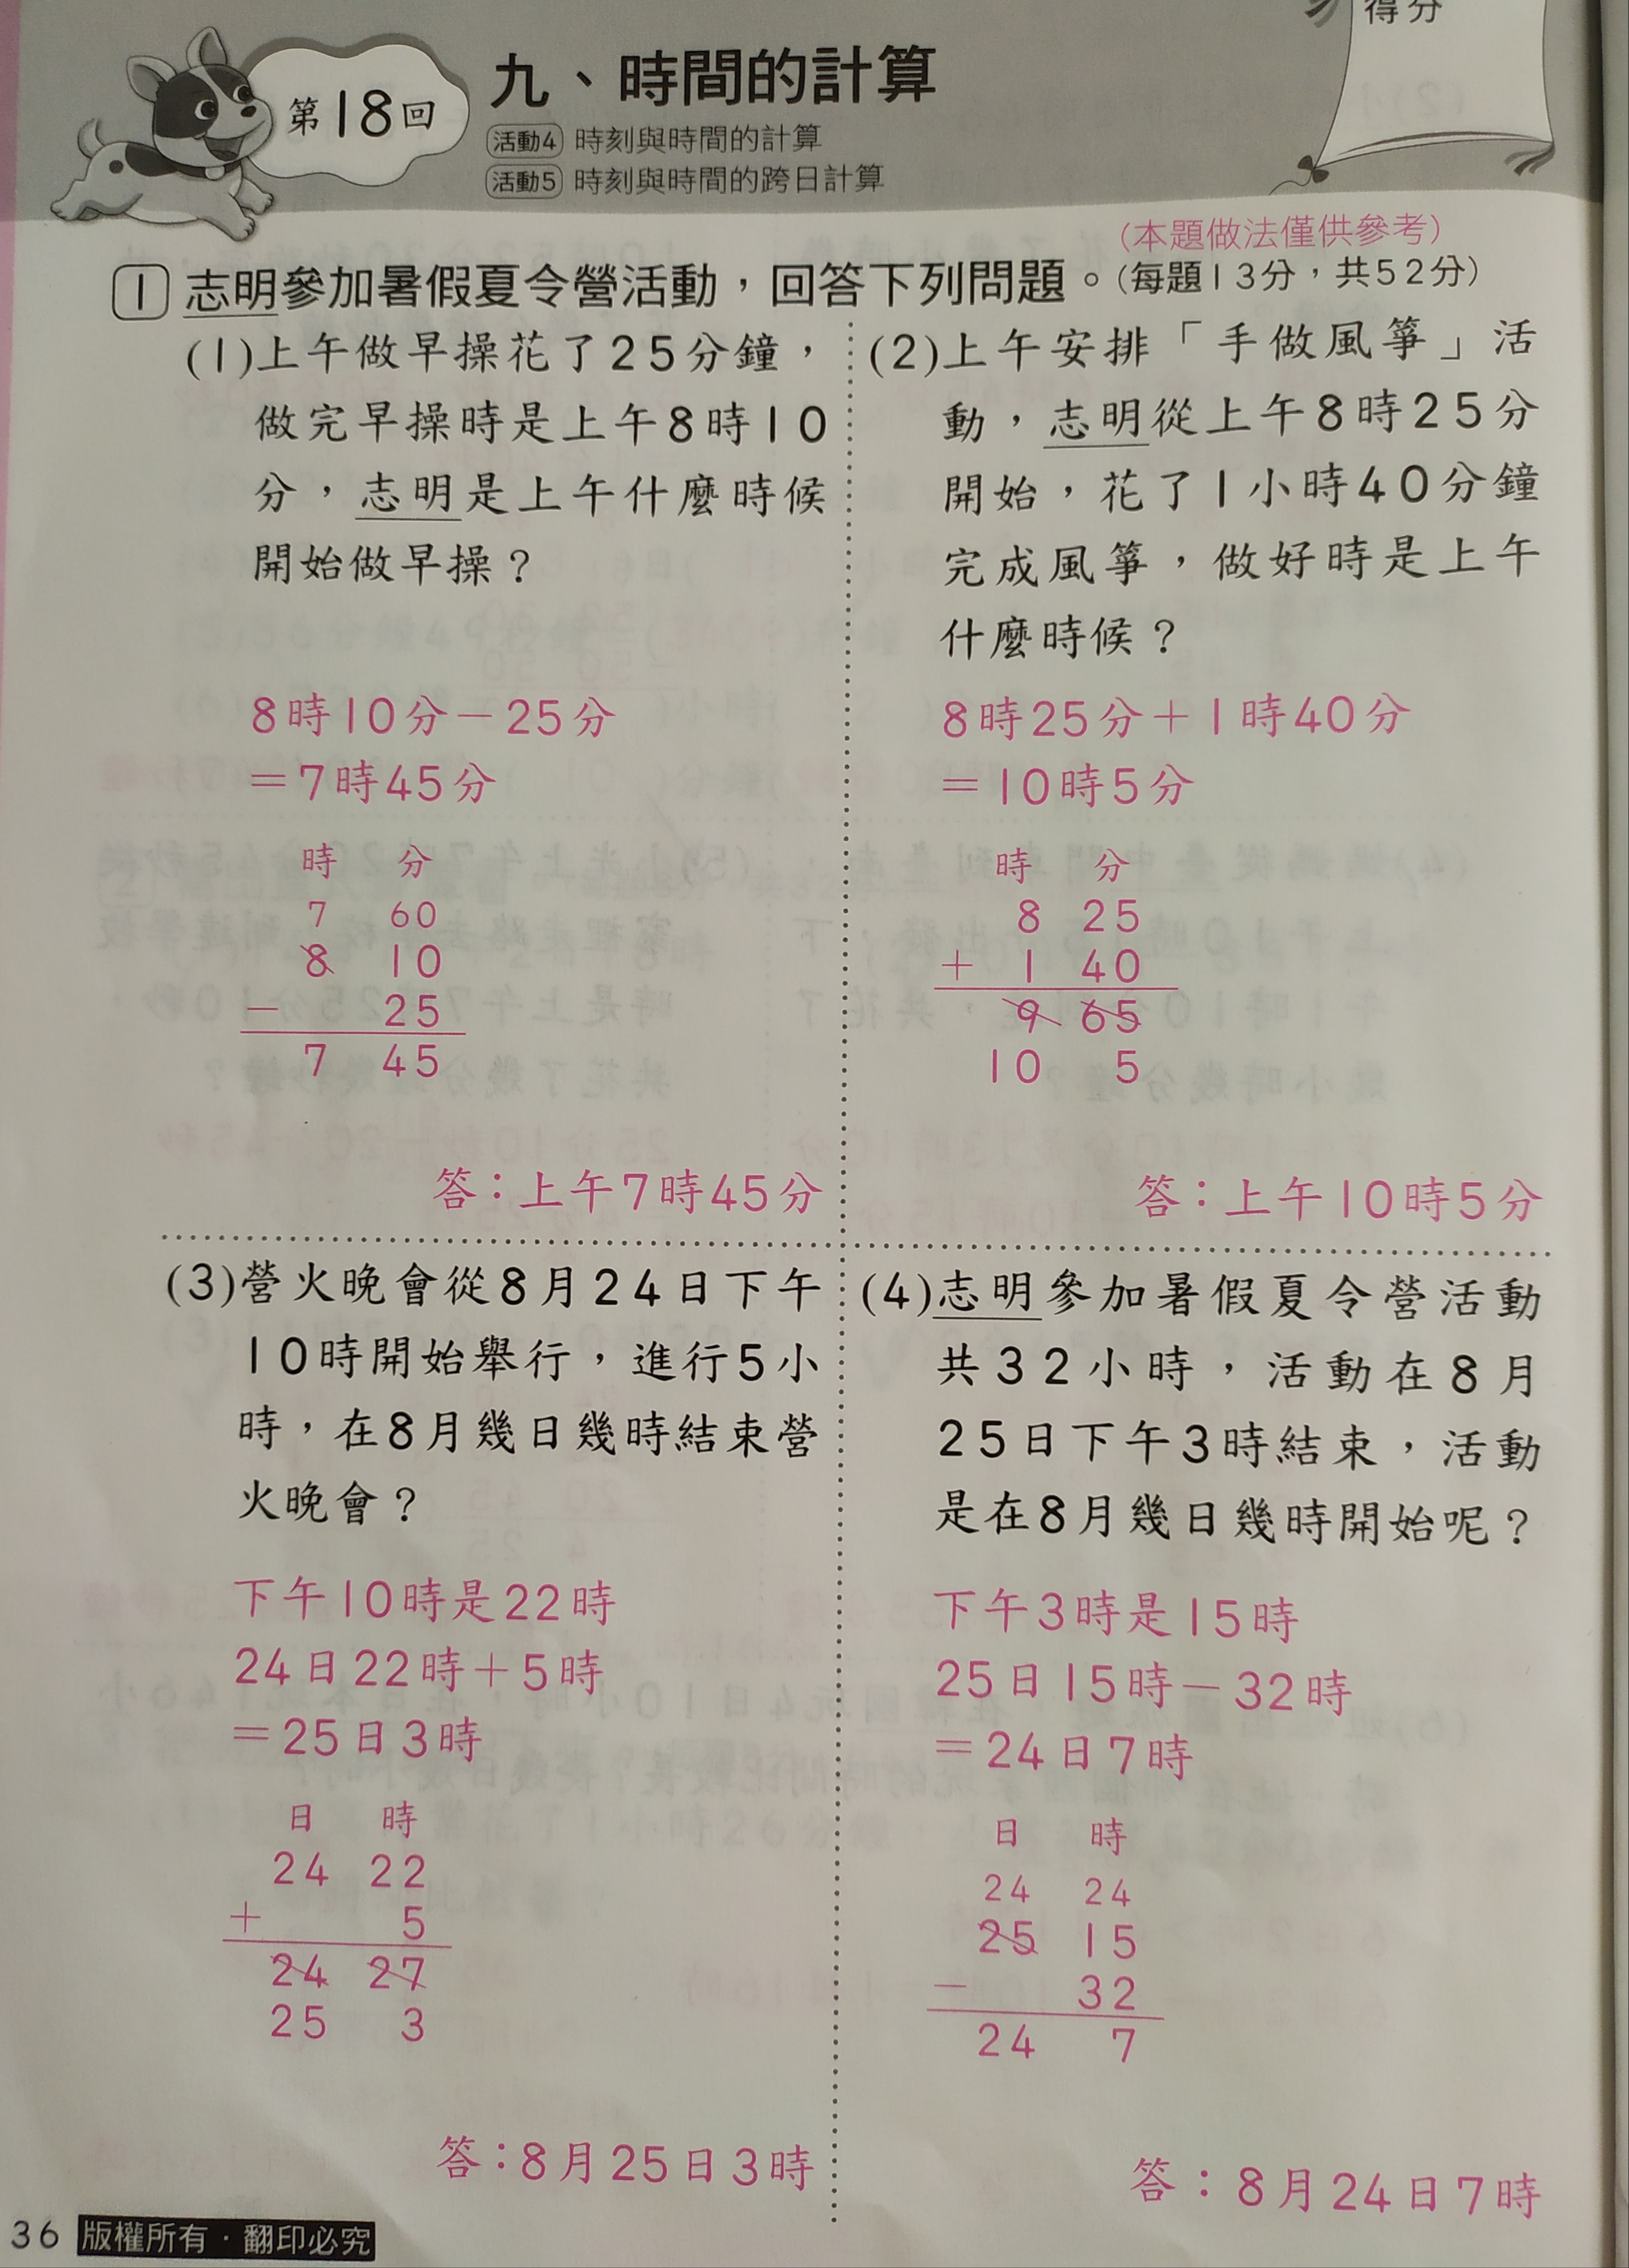 得分
第18回
九、時間的計算
活動4 時刻與時間的計算
活動5 時刻與時間的跨日計算
(本題做法僅供參考)
1 志明參加暑假夏令營活動，回答下列問題。(每題13分，共52分)
(1)上午做早操花了25分鐘，
做完早操時是上午8時10
分，志明是上午什麼時候
開始做早操？
8時10分－25分
＝7時45分
時 分
7 60
8 10
－ 25
7 45
答：上午7時45分
(2)上午安排「手做風箏」活
動，志明從上午8時25分
開始，花了1小時40分鐘
完成風箏，做好時是上午
什麼時候？
8時25分＋1時40分
＝10時5分
時 分
8 25
＋ 1 40
9 65
10 5
答：上午10時5分
(3)營火晚會從8月24日下午
10時開始舉行，進行5小
時，在8月幾日幾時結束營
火晚會？
下午10時是22時
24日22時＋5時
＝25日3時
日 時
24 22
＋ 5
24 27
25 3
答：8月25日3時
(4)志明參加暑假夏令營活動
共32小時，活動在8月
25日下午3時結束，活動
是在8月幾日幾時開始呢？
下午3時是15時
25日15時－32時
＝24日7時
日 時
24 24
25 15
－ 32
24 7
答：8月24日7時
36 版權所有·翻印必究